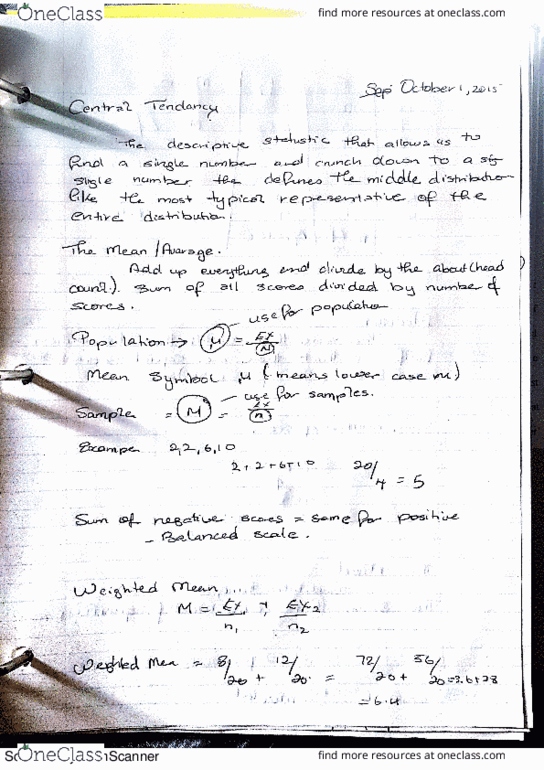 OneClass
find more resources at oneclass.com
Sep October 1, 2015
Central Tendancy
The descriptive statustic that allows us to
find a single number and crunch down to a sg
single number the defines the middle distribution
like the most typical representative of the
entire distribution.
The Mean / Average.
Add up everything and divide by the about (head
count). Sum of all scores divided by number of
scores.
use for population
Population → μ = ΣX/N
Mean Symbol μ (means lower case m)
use for samples.
Sample = M = ΣX/n
Exampe 2,2,6,10
2+2+6+10 20/4 = 5
Sum of negative scores = same for positive
- Balanced scale.
Weighted Mean
M = ΣX1/n1 + ΣX2/n2
Weighted Mea = 8/20 + 12/20 = 72/20 + 56/20 = 3.6+2.8
= 6.4
OneClass
Scanner
find more resources at oneclass.com